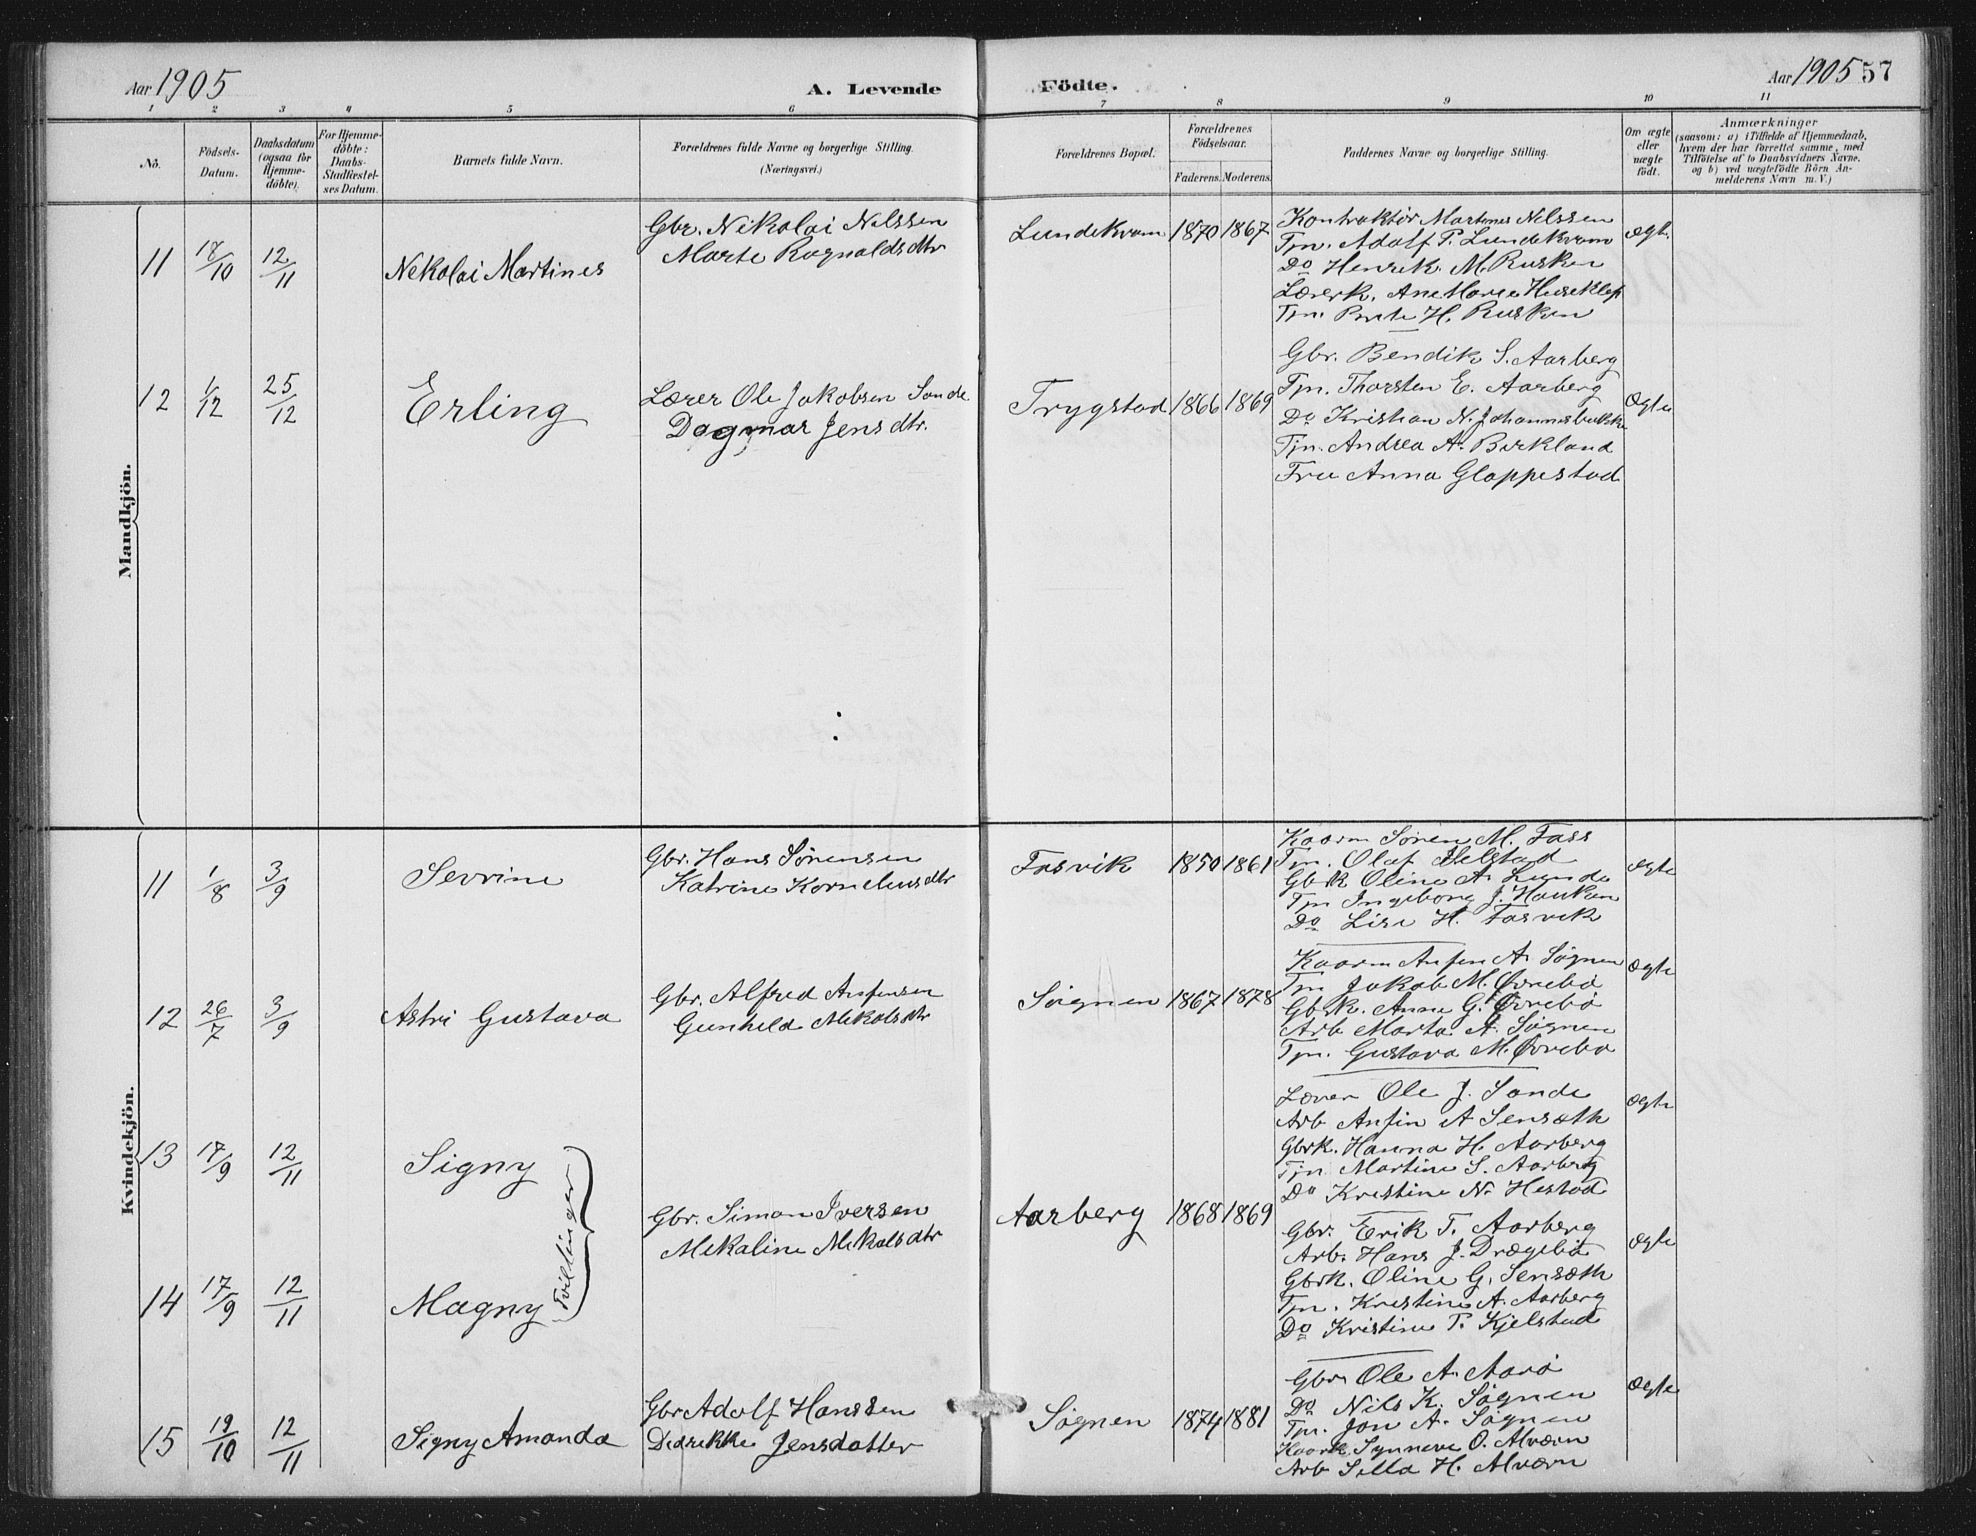 Aar 1905
A. Levende Födte.
Aar 1905 57
1 2 3 4 5 6 7 8 9 10 11
Nö.
Födsels-Datum.
Daabsdatum (ogsaa for Hjemme-döbte).
For Hjemme-döbte: Daabs-Stadfæstel-ses Datum.
Barnets fulde Navn.
Forældrenes fulde Navne og borgerlige Stilling. (Næringsvei.)
Forældrenes Bopæl.
Forældrenes Födselsaar.
Faderens. Moderens.
Faddernes Navne og borgerlige Stilling.
Om ægte eller uægte födt.
Anmærkninger (saasom: a) i Tilfælde af Hjemmedaab, hvem der har forrettet samme, med Tilföielse af to Daabsvidners Navne, og b) ved uægtefödte Börn An-melderens Navn m. V.)
Mandkjön.
11 18/10 12/11 Nekolai Martines
Gbr. Nikolai Nilssen
Marte Ragnaldsdtr
Lundekvam 1870 1867
Kontraktör Martines Nilssen
Tjn. Adolf P. Lundekvam
Do Henrik M. Rusken
Lærerk. Ane Marie Huseklep
Tjn. H. Rusken
ægte
12 1/12 25/12 Erling
Lærer Ole Jakobsen Sande
Dagmar Jensdtr.
Trygstad 1866 1869
Gbr. Bendik S. Aarberg
Tjn. Thorsten E. Aarberg
Do Kristian N.
Tjn. Andrea A. Birkland
Fru Anna Gloppestad
Ægte
Kvindekjön.
11 1/8 3/9 Sevrine
Gbr. Hans Sörensen
Katrine Korneliusdtr
Fasvik 1850 1861
Kaarm Sören M. Fass
Tjn. Olaf Helstad
Gbrk Oline A. Lunde
Tjn Ingeborg J. Hauken
Do Lise H. Fasvik
ægte
12 26/7 3/9 Astri Gustava
Gbr. Alfred Anfinsen
Gunhild Mikalsdtr
Søgnen 1867 1878
Kaarm Anfin A. Søgnen
Tjn Jakob M. Øvrebø
Gbrk. Anne G. Øvrebø
Arb Marta A. Søgnen
Tjn. Gustava M. Øvrebø
Ægte
13 17/9 12/11 Signy
Tvillinger
Gbr. Simon Iversen
Mikaline Mikalsdtr
Aarberg 1868 1869
Lærer Ole J. Sande
Arb Anfin A Sensæth
Gbrk. Hanna H. Aarberg
Tjn Martine S. Aarberg
Do Kristine N. Hestad
Ægte
14 17/9 12/11 Magny
Gbr. Erik T. Aarberg
Arb. Hans J. Drægebø
Gbrk. Oline G. Sensæth
Tjn. Kristine A. Aarberg
Do Kristine P. Kjelstad
Ægte
15 19/10 12/11 Signy Amanda
Gbr Adolf Hanssen
Didrikke Jensdatter
Søgnen 1874 1881
Gbr. Ole A. Aarø
Do Nils K. Søgnen
Tjn. Jon A. Søgnen
Kaark Synneve O. Alværn
Arb Silla H. Alværn
Ægte